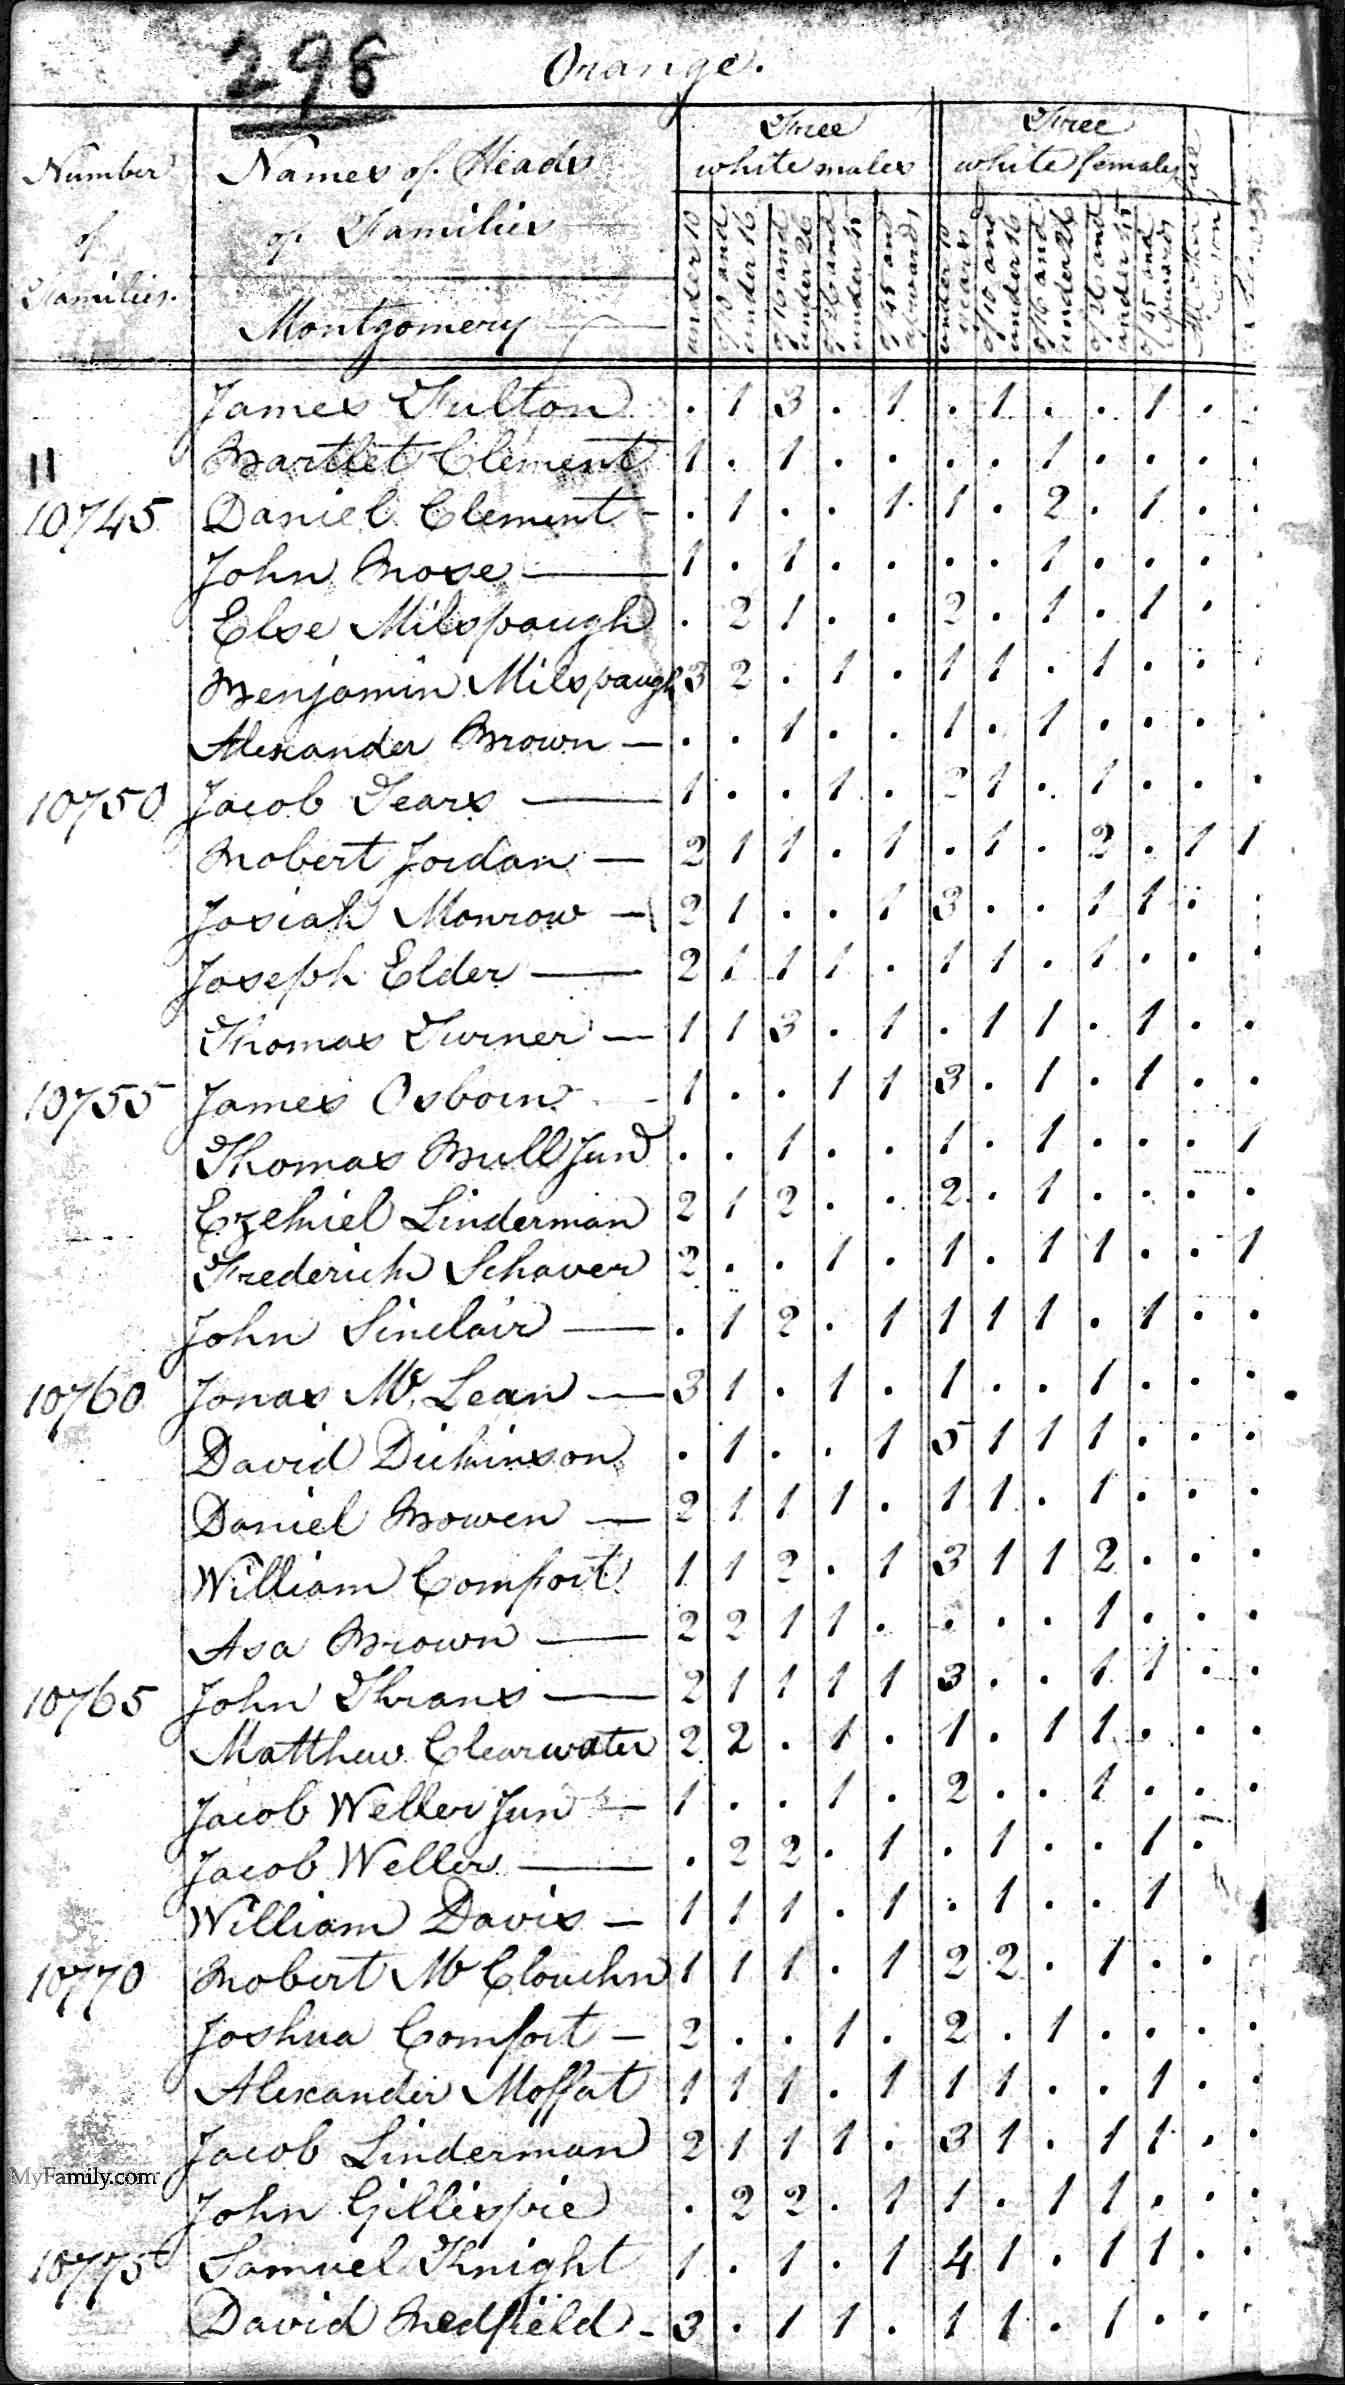 298
Orange.
Number of Families. Names of Heads of Families Free white males Free white females
Montgomery under 10 of 10 and under 16 of 16 and under 26 of 26 and under 45 of 45 and upwards under 10 years of 10 and under 16 of 16 and under 26 of 26 and under 45 of 45 and upwards
James Fulton . 1 3 . 1 . 1 . . 1 . .
11 Bartlet Clement 1 . 1 . . . . 1 . . . .
10745 Daniel Clement - . 1 . . 1 1 . 2 . 1 . .
John Rose — 1 . 1 . . . . 1 . . . .
Else Milspaugh . 2 1 . . 2 . 1 . 1 .
Benjamin Milspaugh 3 2 . 1 . 1 1 . 1 . . .
Alexander Brown — . . 1 . . 1 . 1 . . . .
10750 Jacob Sears — 1 . . 1 . 2 1 . 1 . . .
Robert Jordan — 2 1 1 . 1 . 1 . 2 . 1 1
Josiah Monrow — 2 1 . . 1 3 . . 1 1 . .
Joseph Elder — 2 1 1 1 . 1 1 . 1 . . .
Thomas Turner — 1 1 3 . 1 . 1 1 . 1 . .
10755 James Osborn 1 . . 1 1 3 . 1 . 1 . .
Thomas Bull Jun . . 1 . . 1 . 1 . . . 1
Ezekiel Linderman 2 1 2 . . 2 . 1 . . . .
Frederick Schaver 2 . . 1 . 1 . 1 1 . . 1
John Sinclair — . 1 2 . 1 1 1 1 . 1 . .
10760 Jonas Mc Lean — 3 1 . 1 . 1 . . 1 . . .
David Dickinson . 1 . . 1 5 1 1 1 . . .
Daniel Bowen — 2 1 1 1 . 1 1 . 1 . . .
William Comfort 1 1 2 . 1 3 1 1 2 . . .
Asa Brown — 2 2 1 1 . . . . 1 . . .
10765 John Thrans — 2 1 1 1 1 3 . . 1 1 . .
Matthew Clearwater 2 2 . 1 . 1 . 1 1 . . .
Jacob Weller Jun — 1 . . 1 . 2 . . 1 . . .
Jacob Weller — . 2 2 . 1 . 1 . . 1 .
William Davis — 1 1 1 . 1 . 1 . . 1
10770 Robert Mc Clouchn 1 1 1 . 1 2 2 . 1 . . .
Joshua Comfort — 2 . . 1 . 2 . 1 . . . .
Alexander Moffat 1 1 1 . 1 1 1 . . 1 . .
Jacob Linderman 2 1 1 1 . 3 1 . 1 1 . .
MyFamily.com
John Gillespie . 2 2 . 1 1 . 1 1 . . .
10775 Samuel Knight 1 . 1 . 1 4 1 . 1 1 . .
David Redfield - 3 . 1 1 . 1 1 . 1 . .